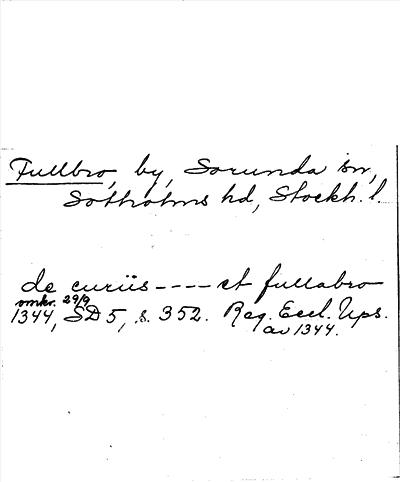 Fullbro, by, Sorunda sn,
Sotholms hd, Stockh. l.
de curiis ---- et fullabro
omkr. 29/9
1344, SD 5, s. 352. Reg. Eccl. Ups.
av 1344.